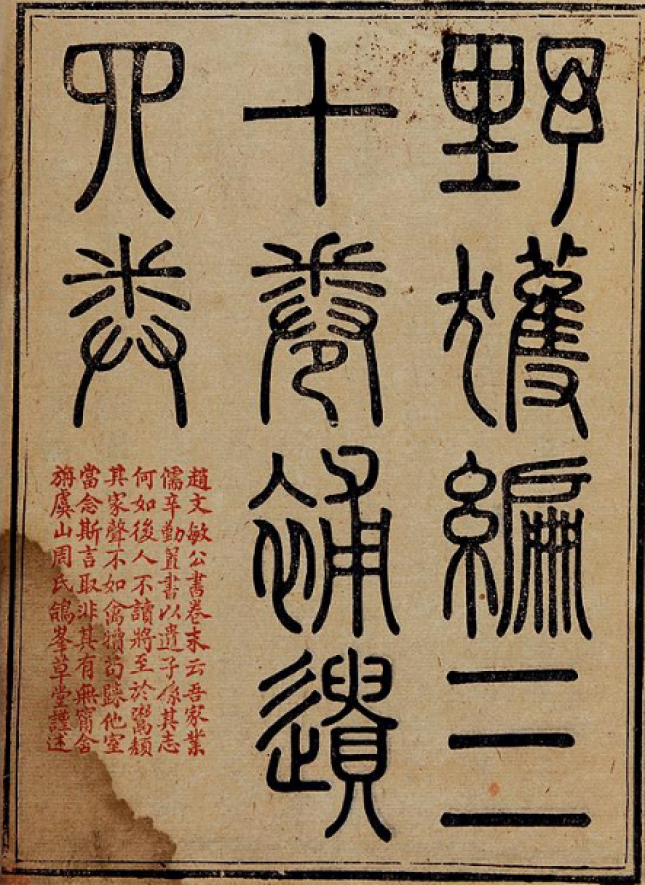 野獲編三
十卷補遺
四卷
趙文敏公書卷末云吾家業
儒辛勤置書以遺子孫其志
何如後人不讀將至於鬻頹
其家聲不如禽犢苟歸他室
當念斯言取非其有無寧舍
旃虞山周氏鴿峯草堂謹述